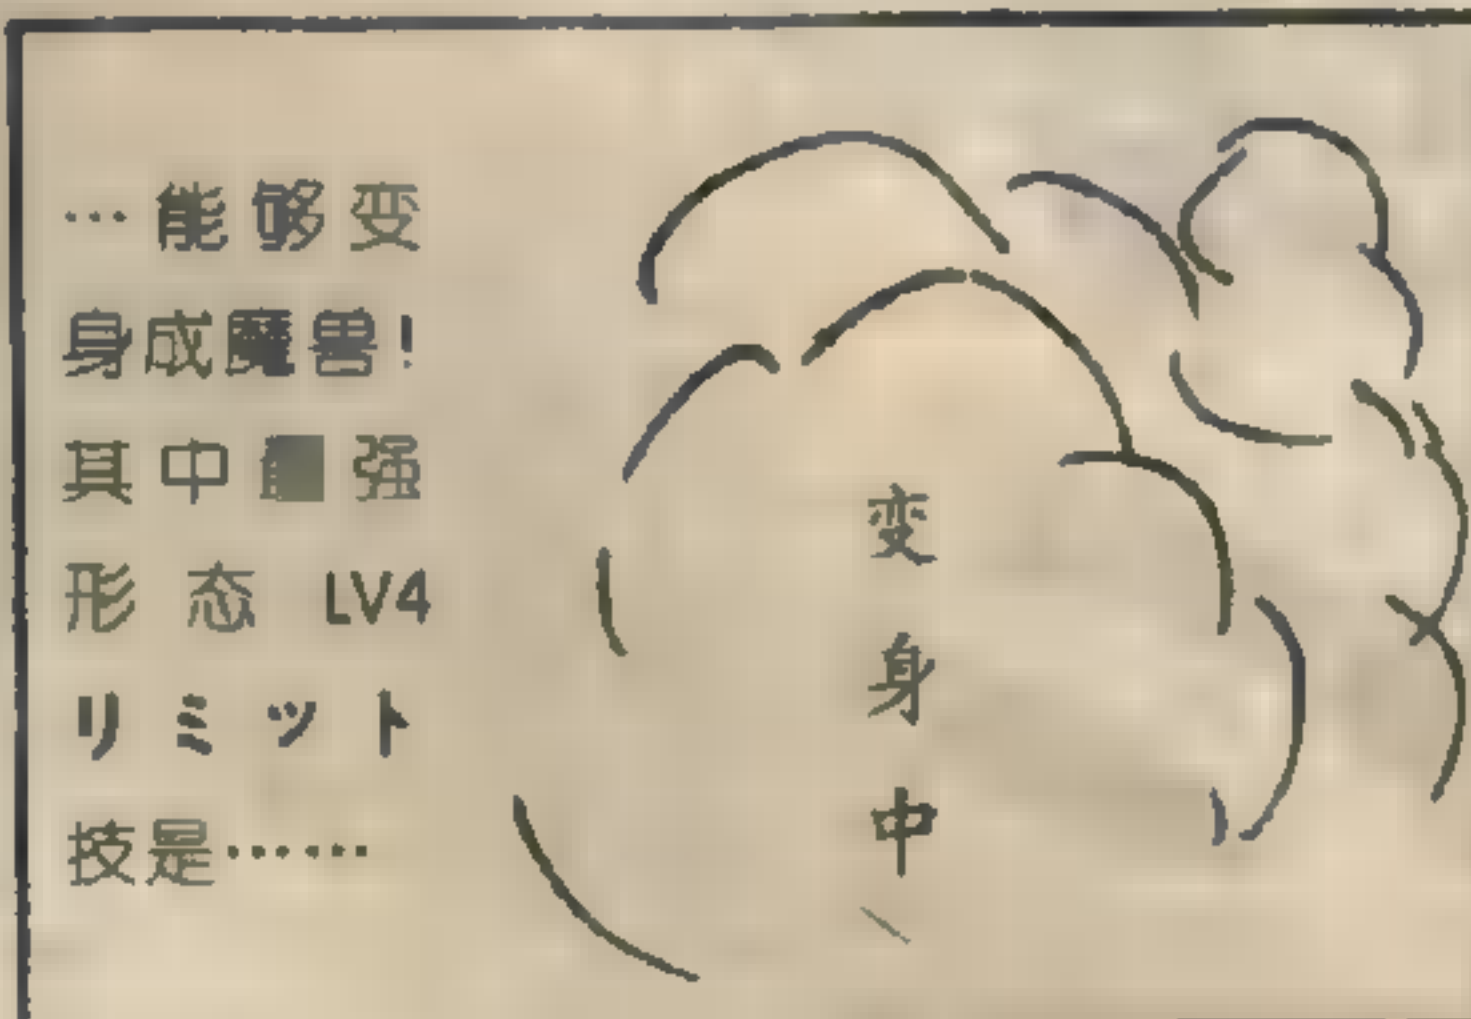 …能够变
身成魔兽!
其中最强
形态 LV4
リミット
技是……
变身中